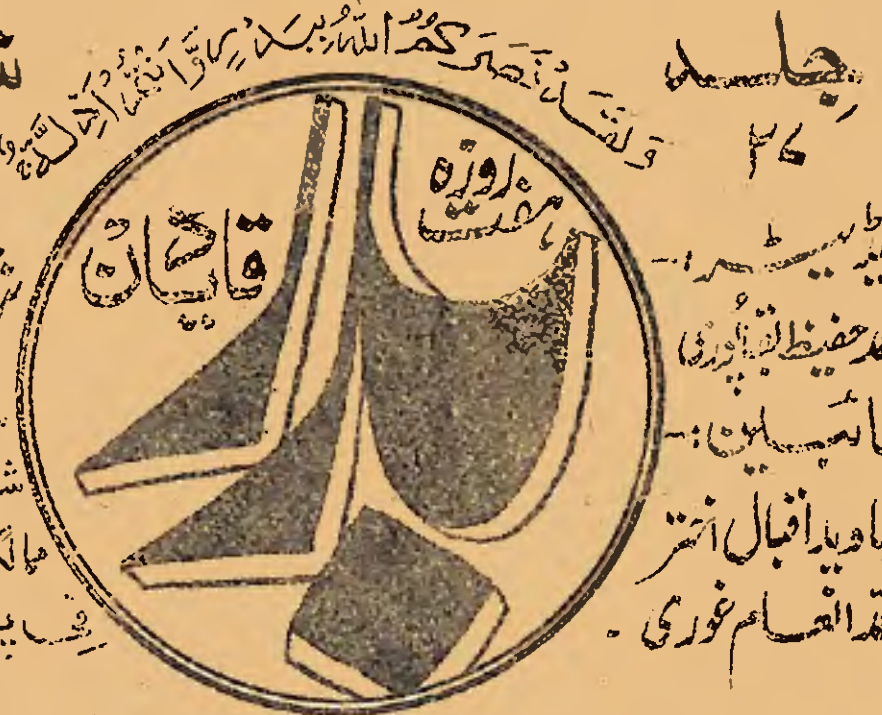 وَلَقَدْ نَصَرَكُمُ اللّٰهُ بِبَدْرٍ وَّاَنْتُمْ اَذِلَّةٌ
جلد
۲۶
ہفت روزہ
بدر
قادیان
یڈیٹر:-
مد حفیظ بقاپوری
نائبین:-
جاوید اقبال اختر
مد انعام غوری